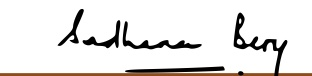 Sadhana Bery